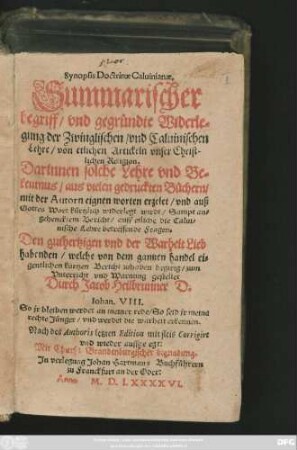 Synopsis Doctrinæ Caluinianæ,
Summarischer
begriff / vnd gegründte Widerle-
gung der Zwinglischen / vnd Caluinischen
Lehre / von etlichen Artickeln vnser Christ-
lichen Religion.
Darinnen solche Lehre vnd Be-
kentnus / aus vielen gedruckten Büchern /
mit der Autorn eignen worten erzelet / vnd auß
Gottes Wort widerlegt wirdt / Sampt an
gehencktem Bericht / auff etliche die Calui-
nische Lehre betreffende Fragen.
Den guthertzigen vnd der Warheit Lieb
habenden / welche von dem gantzen handel ei-
gentlichen kurtzen Bericht zuhaben begern / zum
Vnterricht vnd Warnung gestellet
Durch Jacob Heilbrunner D.
Johan. VIII.
So jr bleiben werdet an meiner rede / So seid jr meine
rechte Jünger / vnd werdet die warheit erkennen.
Nach des Authoris letzten Edition mit fleis Corrigirt
vnd wieder auffgelegt:
Mit Churf: Brandenburgischer begnadung.
In verlegung Johan Hartmans Buchführern
zu Franckfurt an der Oder:
Anno M. D. LXXXXVI.